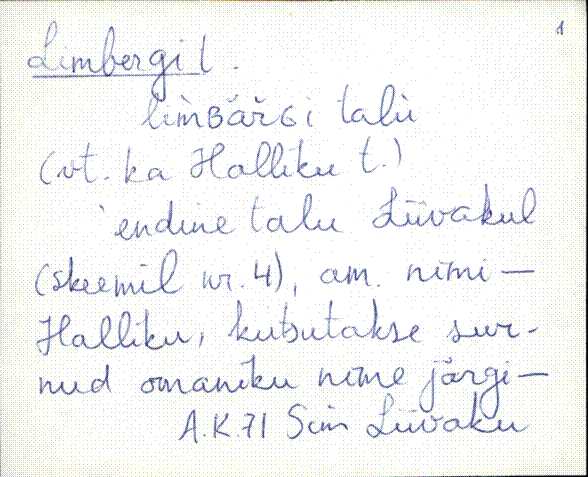 1
Limbergi t.
lìmʙăřɢi talù
(vt. ka Halliku t.)
'endine talu Liivakul
(skeemil nr. 4), am. nimi —
Halliku, kutsutakse sur-
nud omaniku nime järgi —
A.K.71 Siim Liivaku